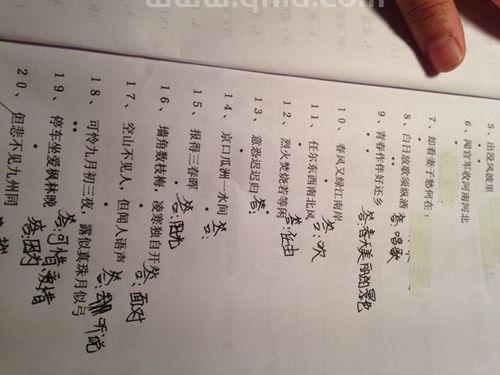 5、出没风波里
6、闻官军收河南河北
7、却看妻子愁何在：
8、白日放歌须纵酒 答：唱歌
9、青春作伴好还乡
答：春天美丽的景色
10、春风又绿江南岸
答：吹
11、任尔东西南北风
答：任由
12、烈火焚烧若等闲
13、意恐迟迟归 答：
14、京口瓜洲一水间
答：
15、报得三春晖
答：阳光
16、墙角数枝梅，凌寒独自开
答：面对
17、空山不见人，但闻人语声
答：听说
18、可怜九月初三夜，露似真珠月似弓
答：可惜 爱惜
19、停车坐爱枫林晚
答：因为
20、但悲不见九州同